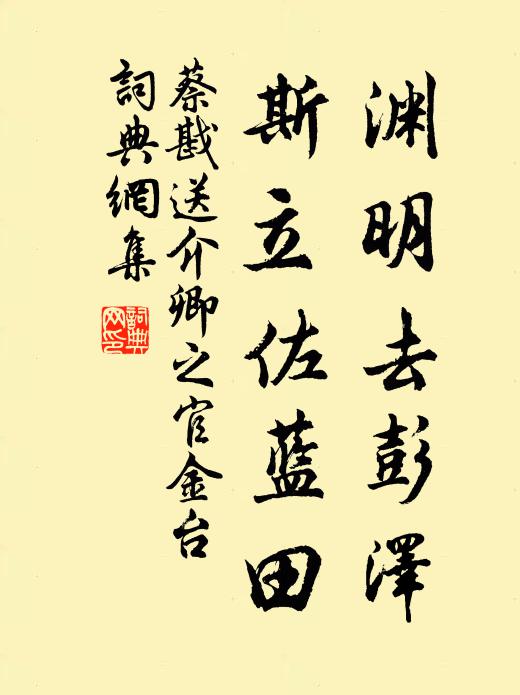 渊明去彭澤
斯立佐藍田
蔡戡送介卿之官金台
詞典網集
詞典
网印